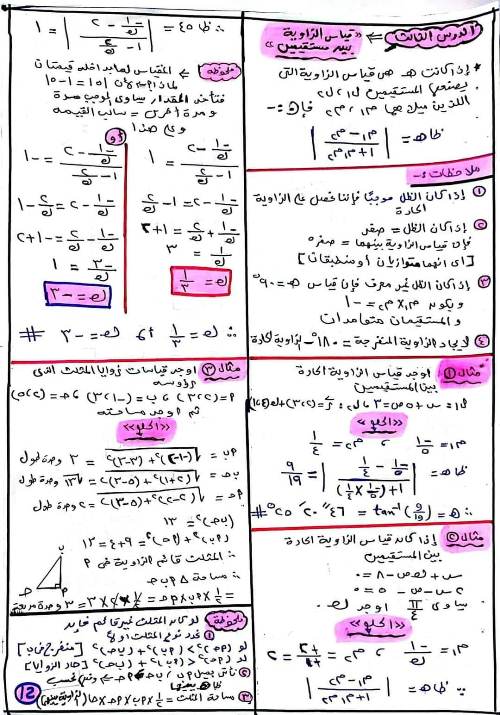 الدرس الثالث ⇐ قياس الزاوية
بين مستقيمين
* إذا كانت هـ هي قياس الزاوية التي
يصنعها المستقيمين ل١، ل٢
اللذين ميلاهما م١، م٢ فإن :-
ظاهـ = | (م١ - م٢) / (١ + م١ م٢) |
ملاحظات :-
١ إذا كان الظل موجباً فإننا نحصل على الزاوية
الحادة
٢ إذا كان الظل = صفر
فإن قياس الزاوية بينهما = صفر°
[أي أنهما متوازيان أو منطبقان]
٣ إذا كان الظل غير معرف فإن قياس هـ = ٩٠°
ويكون م١ × م٢ = -١
والمستقيمان متعامدان
٤ لإيجاد الزاوية المنفرجة = ١٨٠° - الزاوية الحادة
مثال ١ أوجد قياس الزاوية الحادة
بين المستقيمين
«الحلو»
م١ = -١/٥ ، م٢ = ١/٤
ظاهـ = | (-١/٥ - ١/٤) / (١ + (-١/٥)(١/٤)) | = ٩/١٩
∴ هـ = tan⁻¹ (٩/١٩) = ٤٦″ ٢٠′ ٢٥° #
مثال ٢ إذا كان قياس الزاوية الحادة
بين المستقيمين
س + ك ص - ٨ = ٠
٢س - ص - ٥ = ٠
يساوي π/٤ أوجد ك
«الحلو»
م١ = -١/ك ، م٢ = -٢/-١ = ٢
∵ ظاهـ = | (م١ - م٢) / (١ + م١ م٢) |
∴ ظا ٤٥ = | (-١/ك - ٢) / (١ - ٢/ك) | = ١
ملحوظة ⇐ المقياس لما بداخله قيمتان
فنأخذ المقدار يساوي الموجب مرة
ومرة أخرى = سالب القيمة
وعلى هذا
(-١/ك - ٢) / (١ - ٢/ك) = ١
-١/ك - ٢ = ١ - ٢/ك
-١/ك + ٢/ك = ١ + ٢
١/ك = ٣
ك = ١/٣
أو
(-١/ك - ٢) / (١ - ٢/ك) = -١
-١/ك - ٢ = ٢/ك - ١
-١/ك - ٢/ك = -١ + ٢
-٣/ك = ١
ك = -٣
∴ ك = ١/٣ ، ك = -٣ #
مثال ٣ أوجد قياسات زوايا المثلث الذي
رؤوسه
أ = (٢، ٣) ب = (-١، ٣) جـ = (٢، ٥)
ثم أوجد مساحته
«الحلو»
أب = √((-١-٢)² + (٣-٣)²) = ٣ وحدة طول
ب جـ = √((٢+١)² + (٥-٣)²) = √١٣ وحدة طول
أ جـ = √((٢-٢)² + (٥-٣)²) = ٢ وحدة طول
(ب جـ)² = ١٣
(أب)² + (أجـ)² = ٩ + ٤ = ١٣
∴ المثلث قائم الزاوية في أ
∴ مساحة △ أ ب جـ
= ١/٢ × أب × أجـ = ١/٢ × ٢ × ٣ = ٣ وحدة مربعة
ب
أ
جـ
ملحوظة لو كان المثلث غير قائم فإنه
١ نحدد نوع المثلث أولاً
لو (أجـ)² > (أب)² + (ب جـ)² [منفرج في ب]
لو (أجـ)² < (أب)² + (ب جـ)² [حاد الزوايا]
٣ مساحة المثلث = ١/٢ × أب × أجـ × جا (الزاوية بينهم)